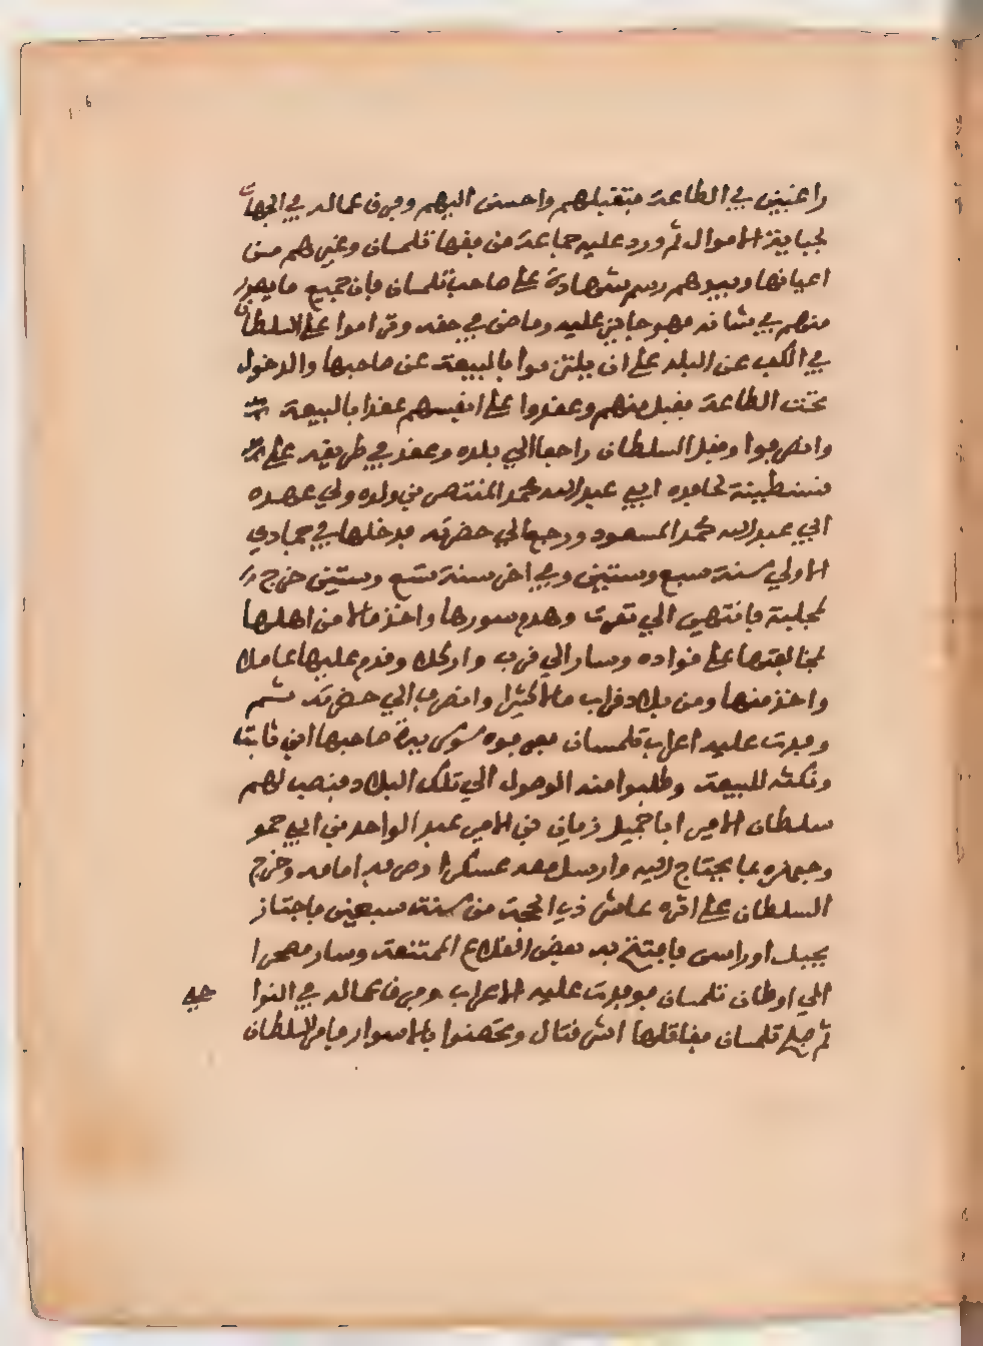 راغبين في الطاعة فتقبلهم واحسن اليهم وفرق عماله في الجهات
لجباية الاموال ثم ورد عليه جماعة من فقها تلمسان وغيرهم من
اعيانها وبيدهم رسم شهادة على صاحب تلمسان فان جميع ما يصدر
منهم في شانه فهو جايز عليه وماض في حقه وتراموا على السلطان
في الكف عن البلد على ان يلتزموا بالبيعة عن صاحبها والدخول
تحت الطاعة فقبل منهم وعقدوا على انفسهم عقدا بالبيعة
وانصرفوا وقفل السلطان راجعا الي بلده وعقد في طريقه على
قسنطينة لحافده ابي عبد الله محمد المنتصر بن ولده ولي عهده
ابي عبد الله محمد المسعود ورجع الي حضرته فدخلها في جمادي
الاولي سنة سبع وستين وفي اخر سنة تسع وستين خرج
لمحلته فانتهى الي تقرت وهدم سورها واخذ مالا من اهلها
لمخالفتها على قواده وسار الي قرب واركلا وقدم عليها عاملا
واخذ منها ومن بلاد مزاب مالا كثيرا وانصرف الي حضرته ثم
وفدت عليه اعراب تلمسان فعرفوه سوء سيرة صاحبها ابن ثابت
ونكثه للبيعة وطلبوا منه الوصول الي تلك البلاد فنصب لهم
سلطان الامير ابا جميل زيان بن الامير عبد الواحد بن ابي حمو
وجهزه بما يحتاج اليه وارسل معه عسكرا وصرفه امامه وخرج
السلطان على اثره عاشر ذي الحجة من سنة سبعين فاجتاز
بجبل اوراس فافتتح به بعض القلاع الممتنعة وسار مصحرا
الي اوطان تلمسان فوفدت عليه الاعراب وفرق عماله في النوا حي
ثم تلمسان فقاتلها اشر قتال وتحصنوا بالاسوار فامر السلطان